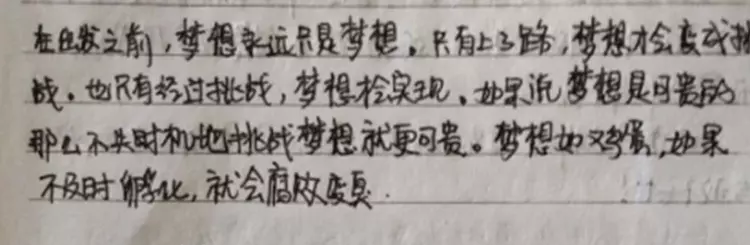 在出发之前，梦想永远只是梦想。只有上了路，梦想才会变成挑
战。也只有经过挑战，梦想才会实现。如果说梦想是可贵的
那么不失时机地挑战梦想就更可贵。梦想如鸡蛋，如果
不及时孵化，就会腐败变臭.